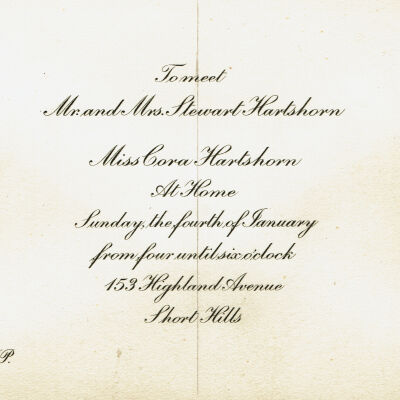 To meet
Mr. and Mrs. Stewart Hartshorn
Miss Cora Hartshorn
At Home
Sunday, the fourth of January
from four until six o'clock
153 Highland Avenue
Short Hills
P.